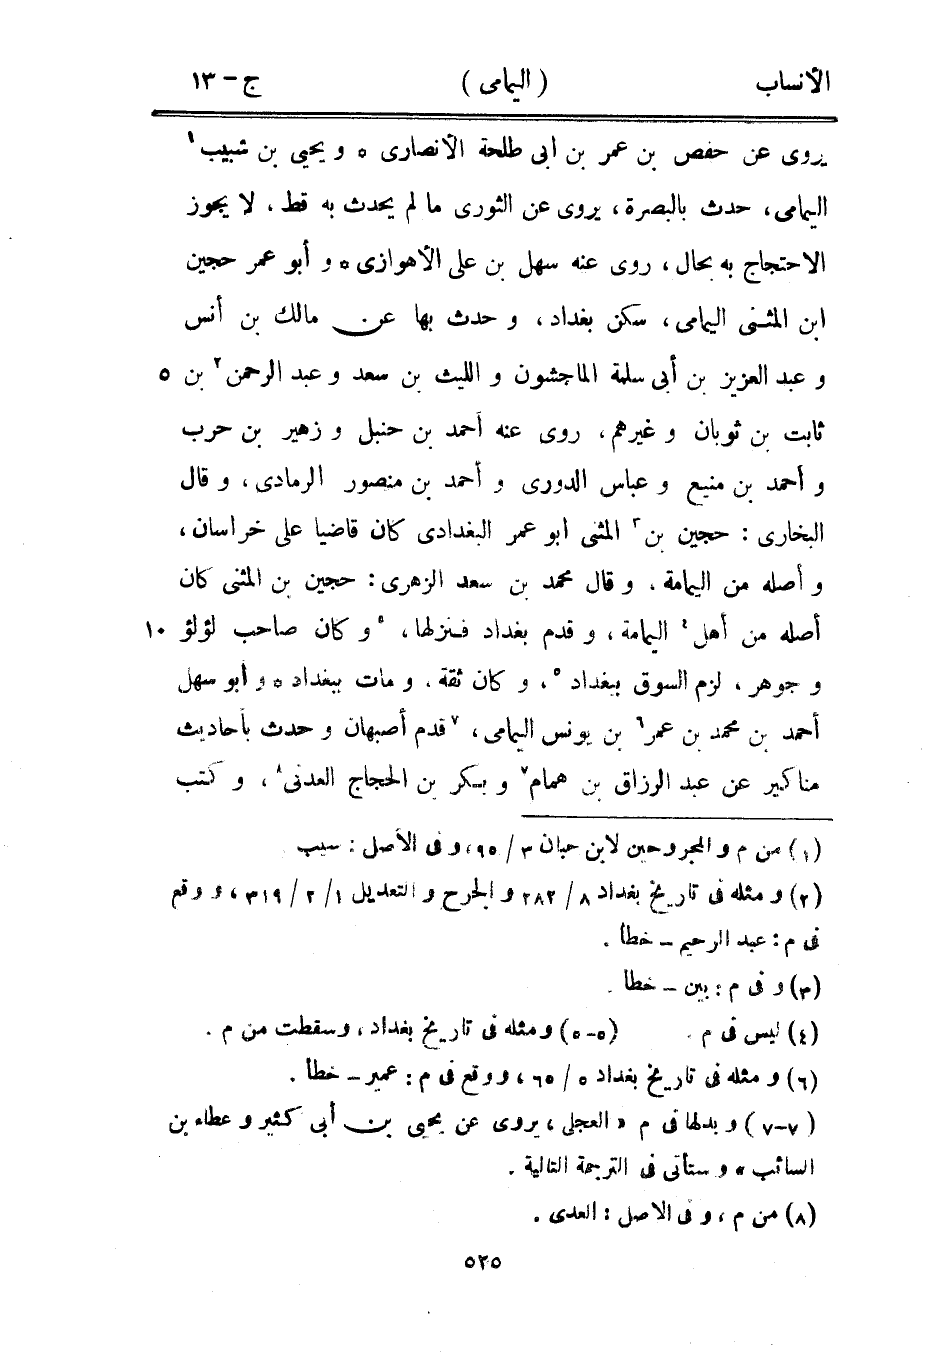 الأنساب ( اليمامى ) ج - ١٣
يروى عن حفص بن عمر بن أبى طلحة الأنصارى ٥ و يحيى بن شبيب١
اليمامى، حدث بالبصرة، يروى عن الثورى ما لم يحدث به قط، لا يجوز
الاحتجاج به بحال، روى عنه سهل بن على الأهوازى ٥ و أبو عمر حجين
ابن المثنى اليمامى، سكن بغداد، و حدث بها عن مالك بن أنس
و عبد العزيز بن أبى سلمة الماجشون و الليث بن سعد و عبد الرحمن٢ بن ٥
ثابت بن ثوبان و غيرهم، روى عنه أحمد بن حنبل و زهير بن حرب
و أحمد بن منيع و عباس الدورى و أحمد بن منصور الرمادى، و قال
البخارى : حجين بن٣ المثنى أبو عمر البغدادى كان قاضيا على خراسان،
و أصله من اليمامة. و قال محمد بن سعد الزهرى : حجين بن المثنى كان
أصله من أهل٤ اليمامة، و قدم بغداد فنزلها، ٥ و كان صاحب لؤلؤ ١٠
و جوهر، لزم السوق ببغداد ٥، و كان ثقة. و مات ببغداد ٥ و أبو سهل
أحمد بن محمد بن عمر٦ بن يونس اليمامى، ٧ قدم أصبهان و حدث بأحاديث
مناكير عن عبد الرزاق بن همام٧ و بكر بن الحجاج العدنى٨، و كتب
(١) من م و المجروحين لابن حبان ٣ / ٩٥، و فى الأصل : سيب
(٢) و مثله فى تاريخ بغداد ٨ / ٢٨٢ و الجرح و التعديل ١/ ٢ / ٣١٩، و وقع
فى م : عبد الرحيم - خطأ .
(٣) و فى م : بين - خطا .
(٤) ليس فى م . (٥-٥) و مثله فى تاريخ بغداد، وسقطت من م .
(٦) و مثله فى تاريخ بغداد ٥ / ٦٥، و وقع فى م : عمير - خطأ .
(٧-٧) و بدلها فى م « العجلى، يروى عن يحيى بن أبى كثير و عطاء بن
السائب » و ستأتى فى الترجمة التالية .
(٨) من م، و فى الاصل : العدى .
٥٢٥